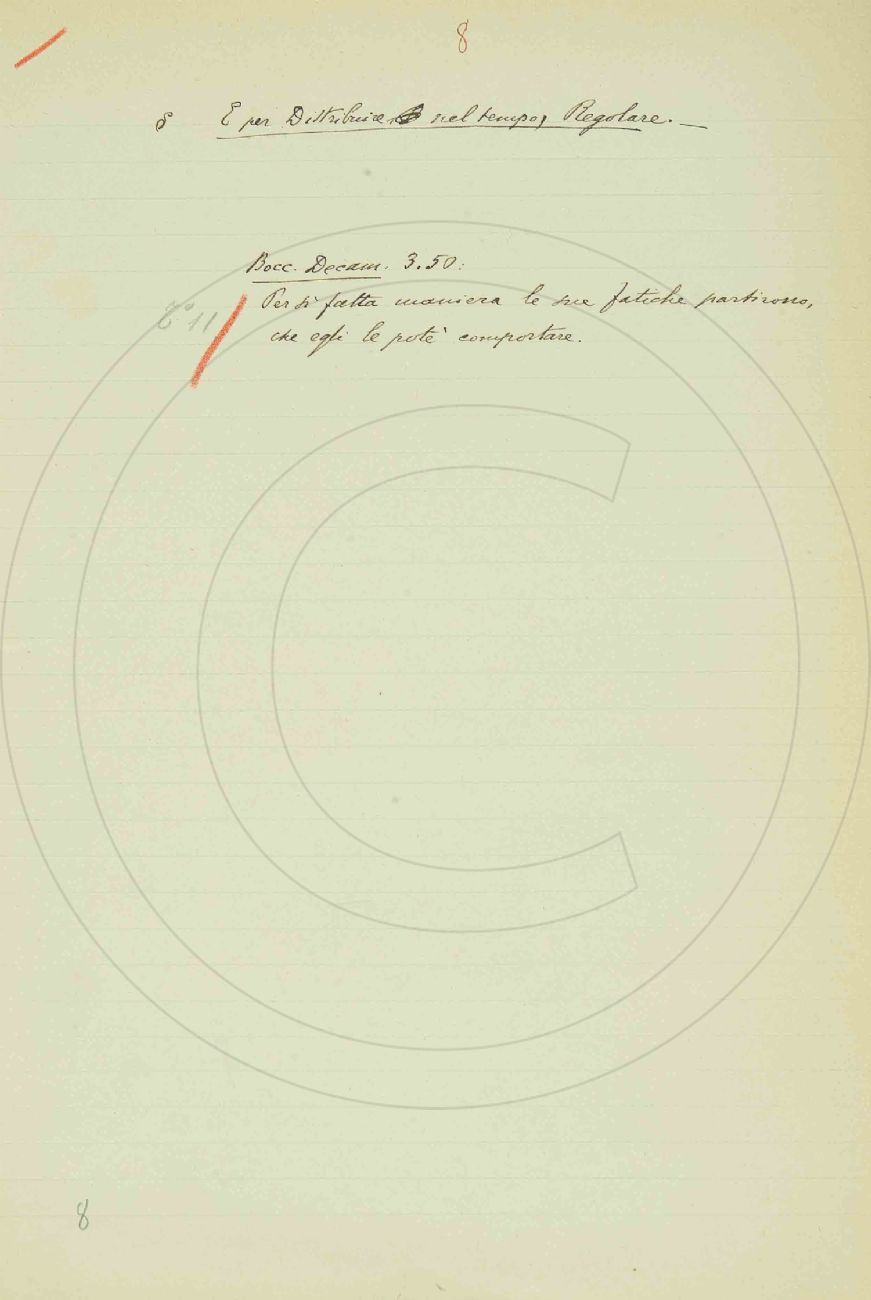 8
§ E per Distribuire nel tempo, Regolare. —
Bocc. Decam. 3.50:
Per sì fatta maniera le sue fatiche partirono,
che egli le potè comportare.
8